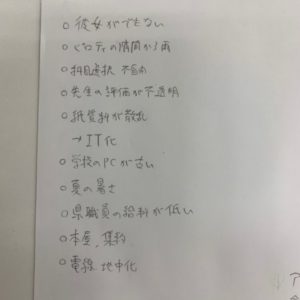 ○ 彼女ができない
○ パンティの隙間から雨
○ 科目選択 不自由
○ 先生の評価が不透明
○ 紙資料が散乱
→ IT化
○ 学校のPCが古い
○ 夏の暑さ
○ 県職員の給料が低い
○ 本屋、集約
○ 電線 地中化
ア